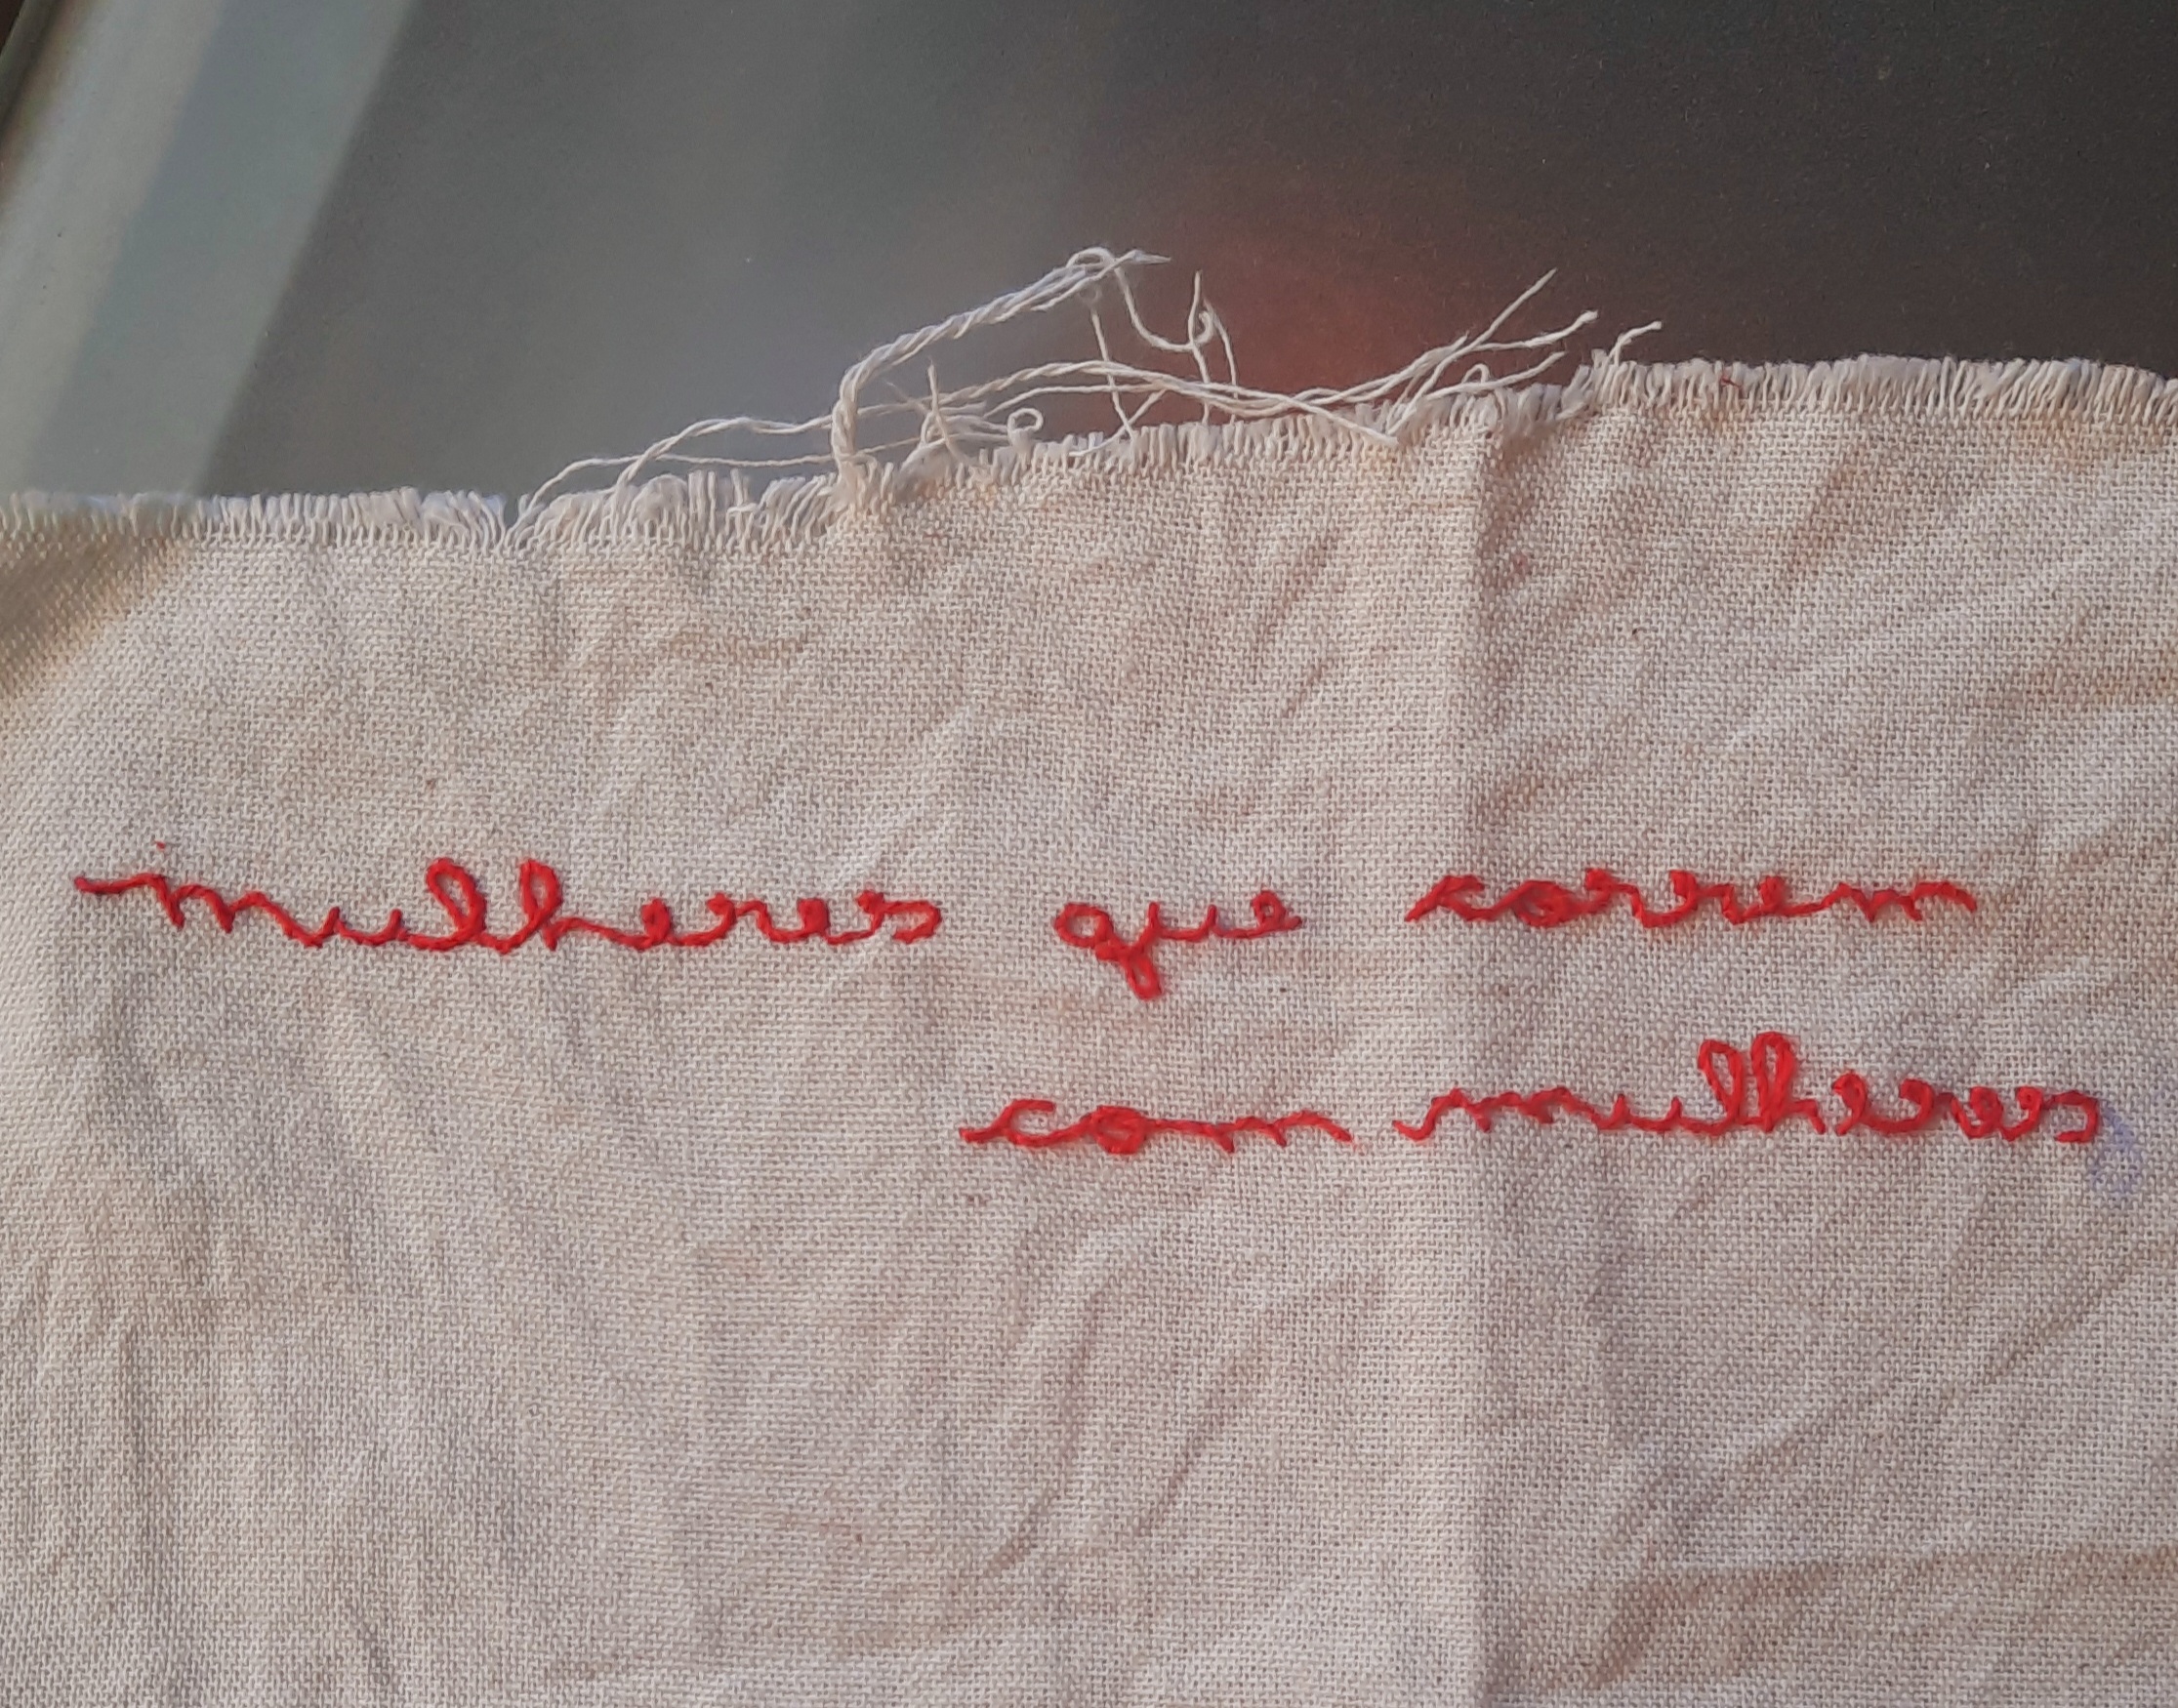 mulheres que correm
com mulheres